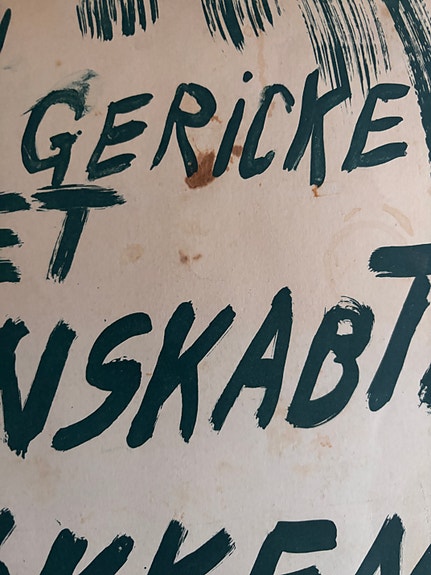 GERiCKE
ET
NSKABT
KKEN